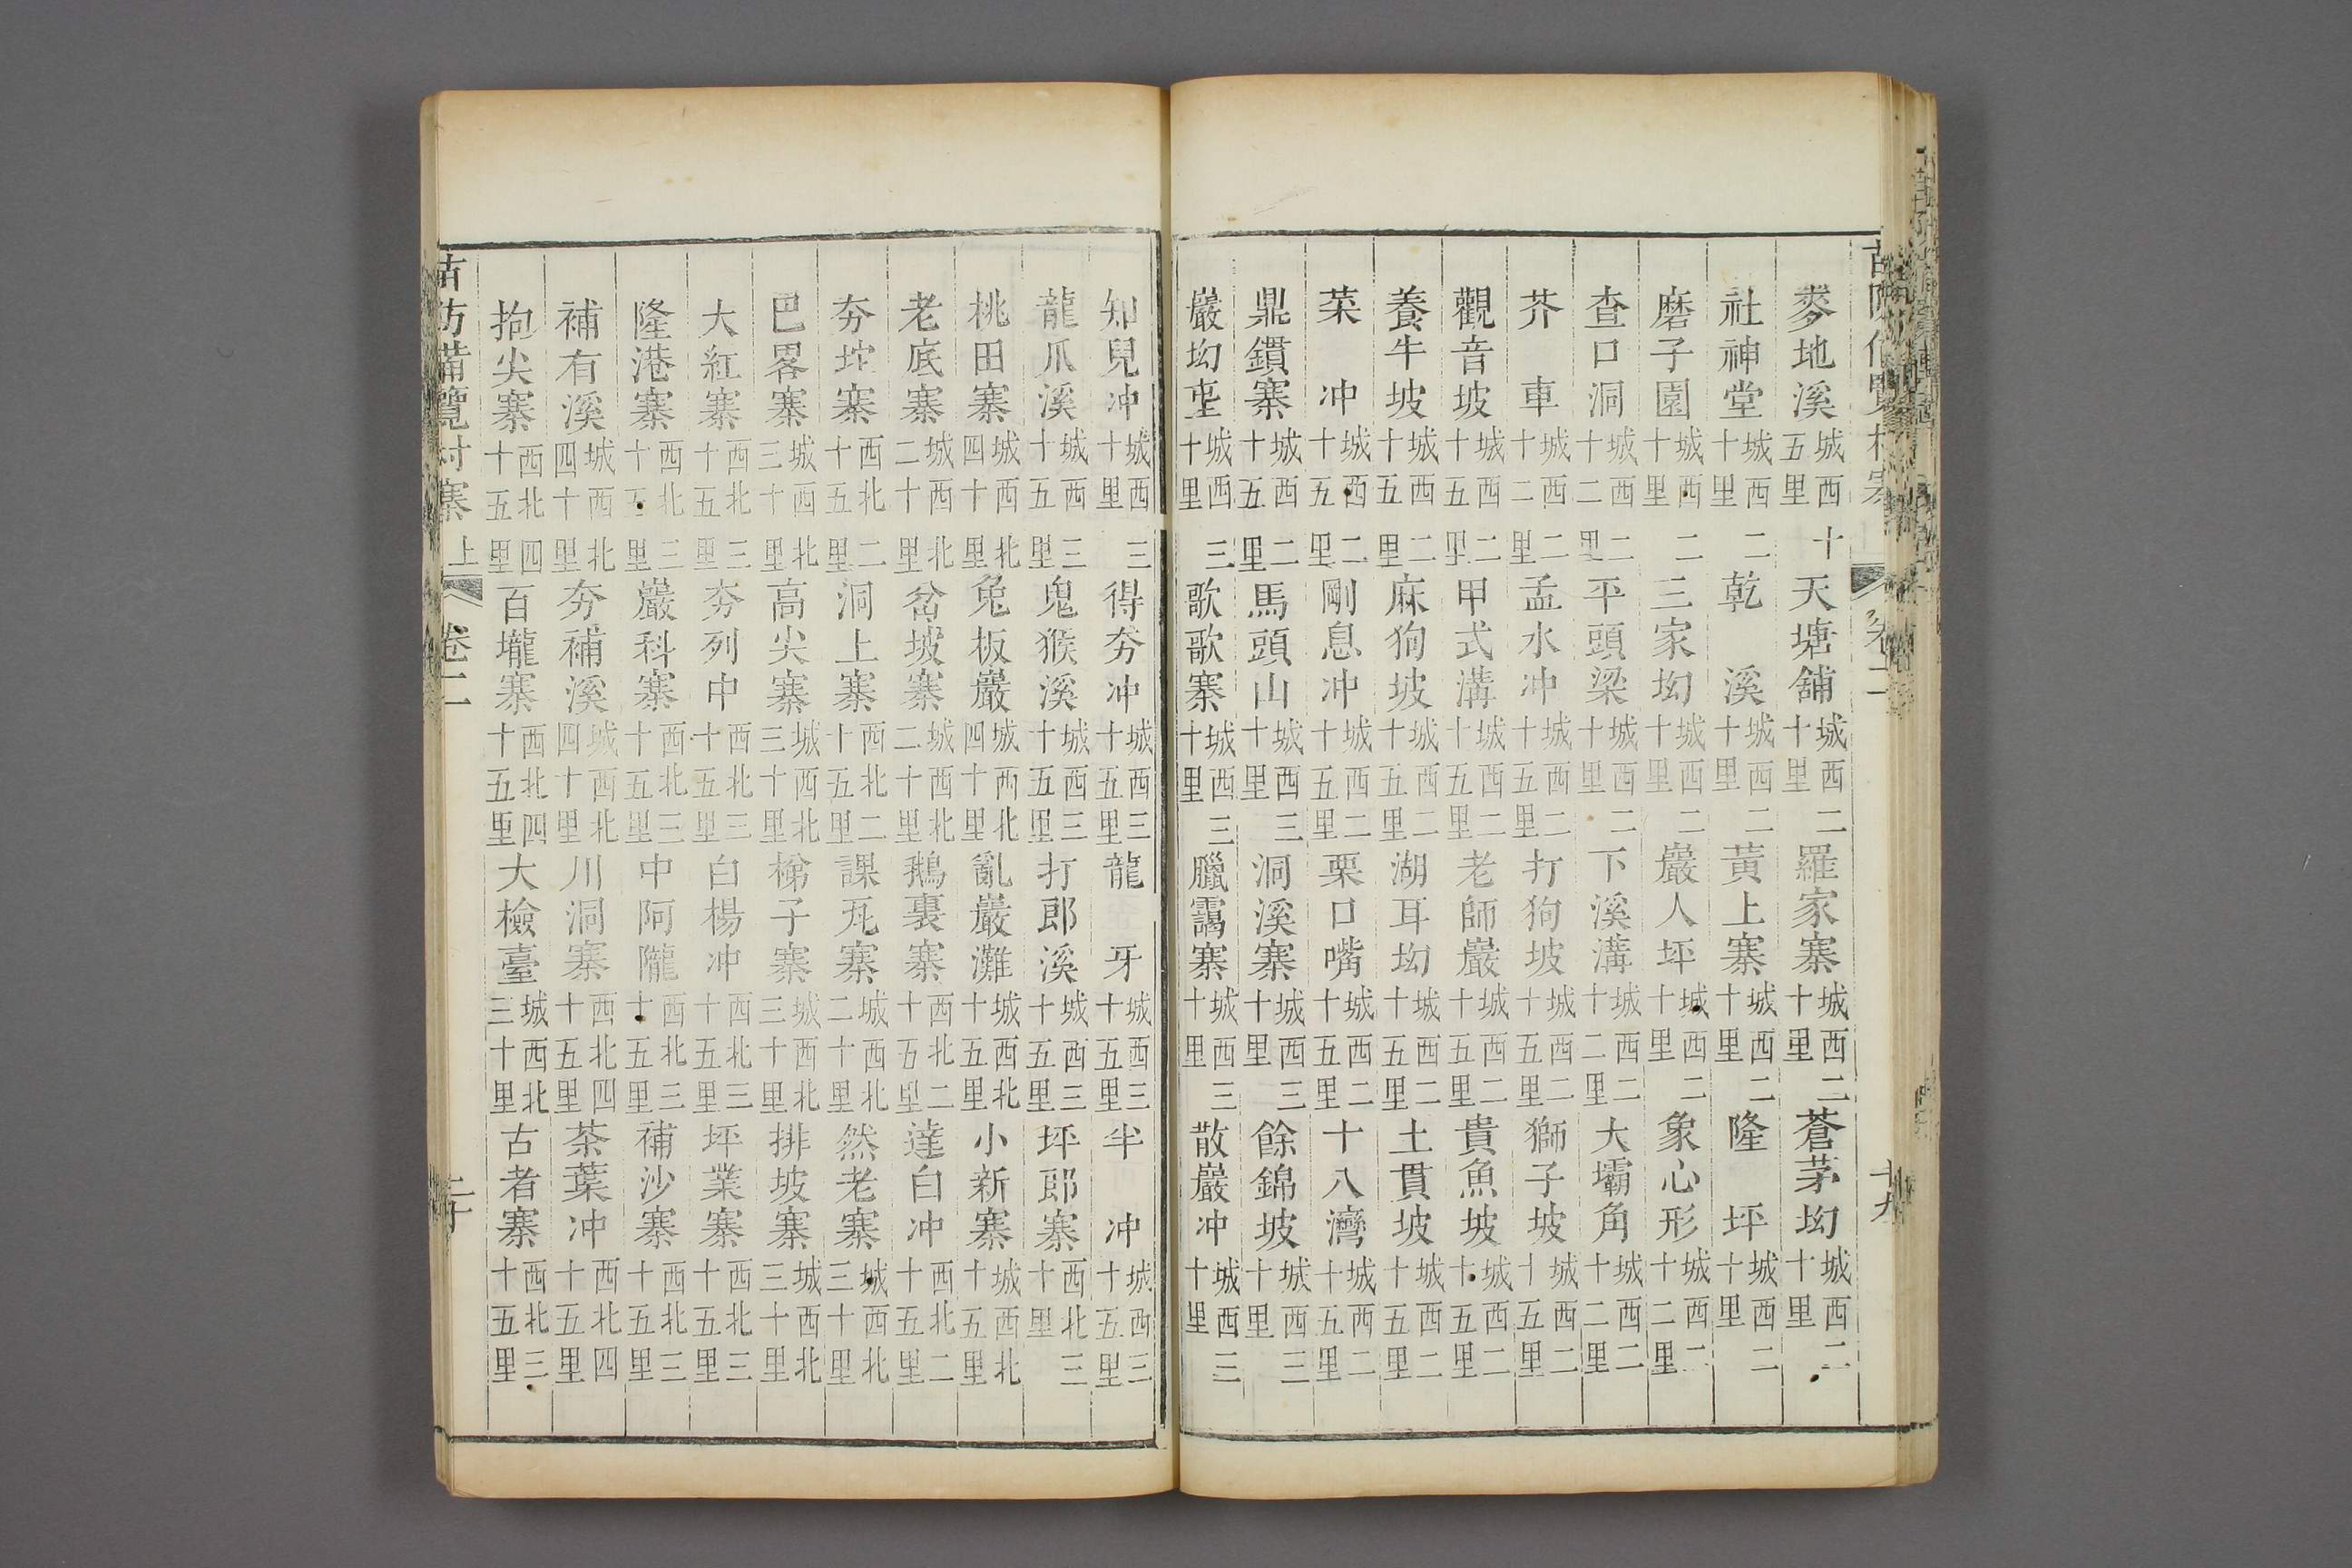 古防備覽村寨 卷二 十九
麥地溪城西十五里天塘舖城西二十里羅家寨城西二十里蒼茅坳城西二十里
社神堂城西二十里乾溪城西二十里黃上寨城西二十里隆坪城西二十里
磨子園城西二十里三家坳城西二十里巖人坪城西二十里象心形城西二十二里
查口洞城西二十二里平頭梁城西二十里下溪溝城西二十二里大壩角城西二十二里
芥車城西二十二里孟水冲城西二十五里打狗坡城西二十五里獅子坡城西二十五里
觀音坡城西二十五里甲式溝城西二十五里老師巖城西二十五里貴魚坡城西二十五里
養牛坡城西二十五里麻狗坡城西二十五里湖耳坳城西二十五里土貫坡城西二十五里
菜冲城西二十五里剛息冲城西二十五里栗口嘴城西二十五里十八灣城西二十五里
鼎鑵寨城西二十五里馬頭山城西三十里洞溪寨城西三十里餘錦坡城西三十里
巖坳屯城西三十里歌歌寨城西三十里臘靄寨城西三十里散巖冲城西三十里
知兒冲城西三十里得夯冲城西三十五里龍牙城西三十五里半冲城西三十五里
龍爪溪城西三十五里鬼猴溪城西三十五里打郎溪城西三十五里坪郎寨西北三十里
桃田寨城西北四十里兔板巖城西北四十里亂巖灘城西北十五里小新寨城西北十五里
老底寨城西北二十里岔坡寨城西北二十里鵝裏寨西北二十五里達白冲西北二十五里
夯坨寨西北二十五里洞上寨西北二十五里課瓦寨城西北二十里然老寨城西北三十里
巴畧寨城西北三十里高尖寨城西北三十里梯子寨城西北三十里排坡寨城西北三十里
大紅寨西北三十五里夯列中西北三十五里白楊冲西北三十五里坪業寨西北三十五里
隆港寨西北三十五里巖科寨西北三十五里中阿隴西北三十五里補沙寨西北三十五里
補有溪城西北四十里夯補溪城西北四十里川洞寨西北四十五里茶葉冲西北四十五里
抱尖寨西北四十五里百壠寨西北四十五里大檢臺城西北三十里古者寨西北三十五里
古防備覽村寨上 卷二 二十